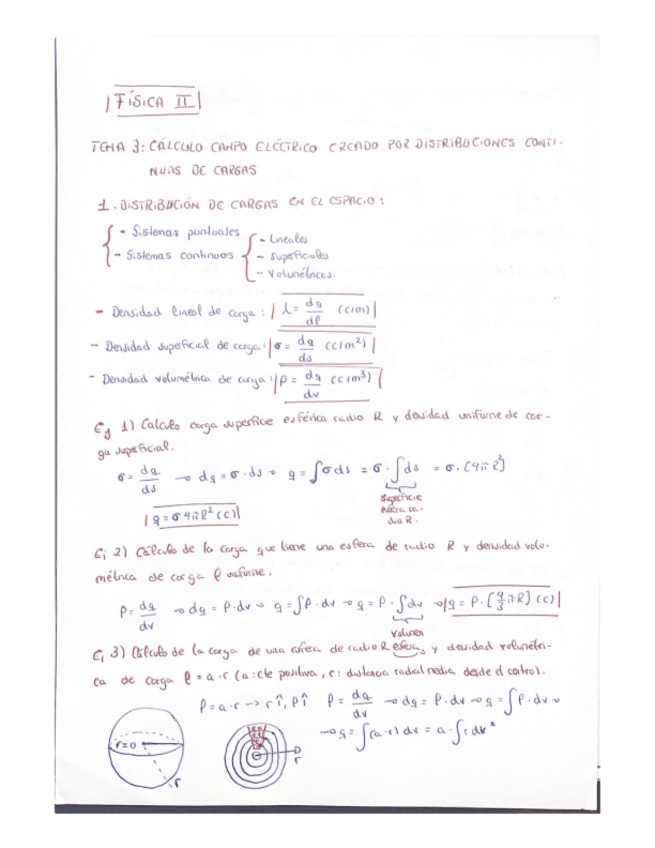 FÍSICA II
TEMA 3: CÁLCULO CAMPO ELÉCTRICO CREADO POR DISTRIBUCIONES CONTI-
NUAS DE CARGAS
1. DISTRIBUCIÓN DE CARGAS EN EL ESPACIO:
- Sistemas puntuales
- Sistemas continuos
- Lineales
- Superficiales
- Volumétricas.
- Densidad lineal de carga: λ = dq/dl (C/m)
- Densidad superficial de carga: σ = dq/ds (C/m²)
- Densidad volumétrica de carga: ρ = dq/dv (C/m³)
Ej 1) Calculo carga superficie esférica radio R y densidad uniforme de car-
ga superficial.
σ = dq/ds → dq = σ·ds → q = ∫σds = σ·∫ds = σ·[4πR²]
Superficie
esfera ra-
dio R.
q = σ4πR² (C)
Ej 2) Cálculo de la carga que tiene una esfera de radio R y densidad volu-
métrica de carga ρ uniforme.
ρ = dq/dv → dq = ρ·dv → q = ∫ρ·dv → q = ρ·∫dv → q = ρ·[4/3 πR] (C)
Volumen
Ej 3) Cálculo de la carga de una esfera de radio R esfera, y densidad volumétri-
ca de carga ρ = a·r (a: cte positiva, r: distancia radial media desde el centro).
ρ = a·r → r↑, ρ↑ ρ = dq/dv → dq = ρ·dv → q = ∫ρ·dv →
→ q = ∫(a·r) dv = a·∫r dv *
r=0
r
r